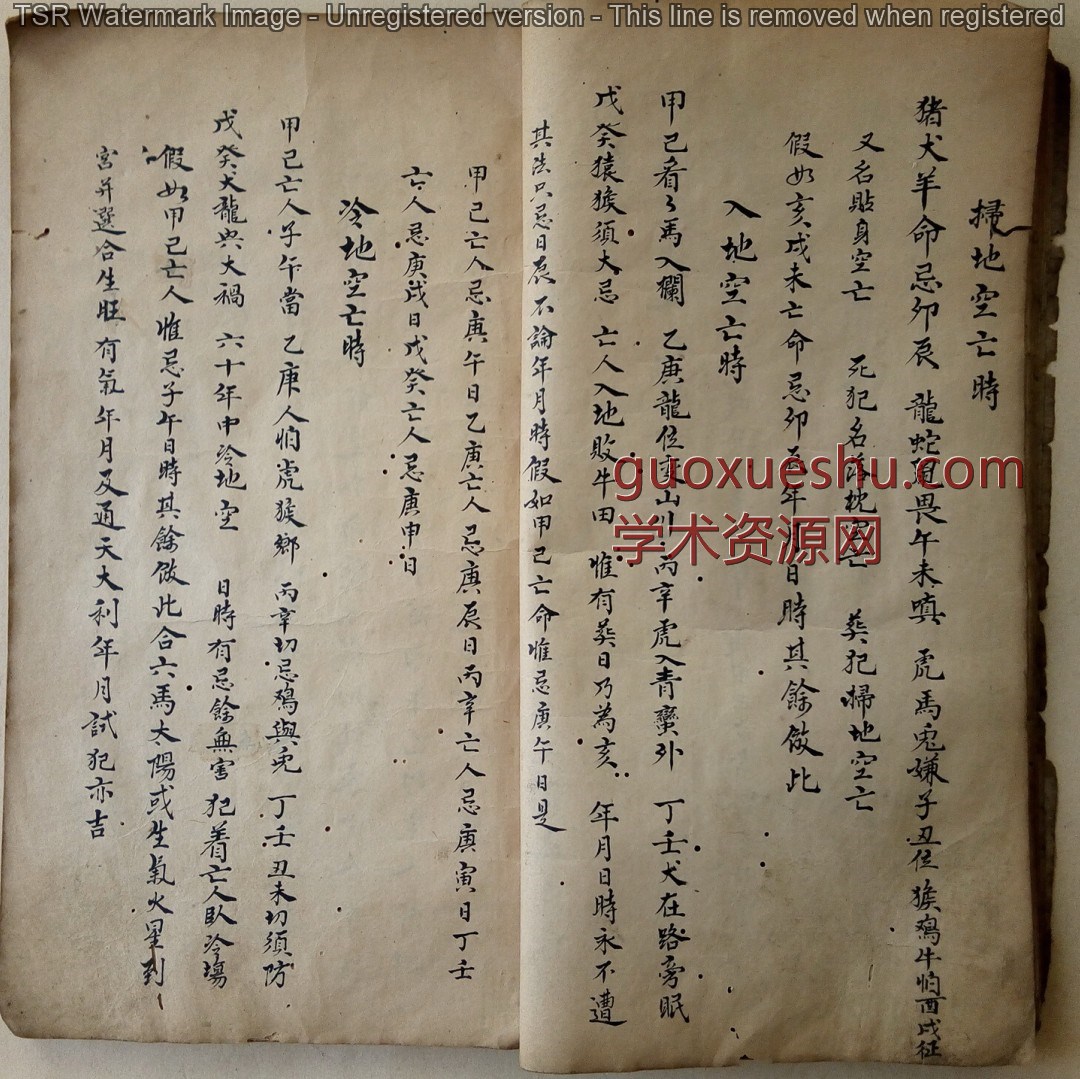 TSR Watermark Image - Unregistered version - This line is removed when registered
掃地空亡時
猪犬羊命忌卯辰 龍蛇鼠畏午未嗔 虎馬兎嫌子丑位 猴鷄牛怕酉戌征
又名貼身空亡 死犯名落枕空亡 葬犯掃地空亡
假如亥戌未亡命忌卯辰年月日時其餘倣此
入地空亡時
甲己看々馬入欄 乙庚龍位在山川 丙辛虎入青蠻外 丁壬犬在路旁眠
戊癸猿猴須大忌 亡人入地敗牛田 惟有葬日乃為亥 年月日時永不遭
其法只忌日辰不論年月時假如甲己亡命惟忌庚午日是
甲己亡人忌庚午日乙庚亡人忌庚辰日丙辛亡人忌庚寅日丁壬
亡人忌庚戌日戊癸亡人忌庚申日
冷地空亡時
甲己亡人子午當 乙庚人怕虎猴鄉 丙辛切忌鷄與兎 丁壬丑未切須防
戊癸犬龍與大禍 六十年中冷地空 日時有忌餘無害 犯着亡人臥冷塲
假如甲己亡人惟忌子午日時其餘倣此合六馬太陽或生氣火星到
宮并選合生旺有氣年月及通天大利年月試犯亦吉
guoxueshu.com
学术资源网